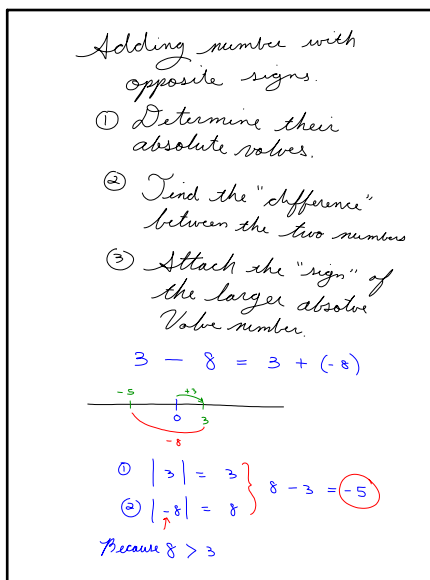 Adding number with
opposite signs.
① Determine their
absolute valves.
② Find the "difference"
between the two numbers
③ Attach the "sign" of
the larger absolve
Valve number.
3 - 8 = 3 + (-8)
-5 +3
0 3
-8
① |3| = 3
② |-8| = 8
8 - 3 = -5
Because 8 > 3